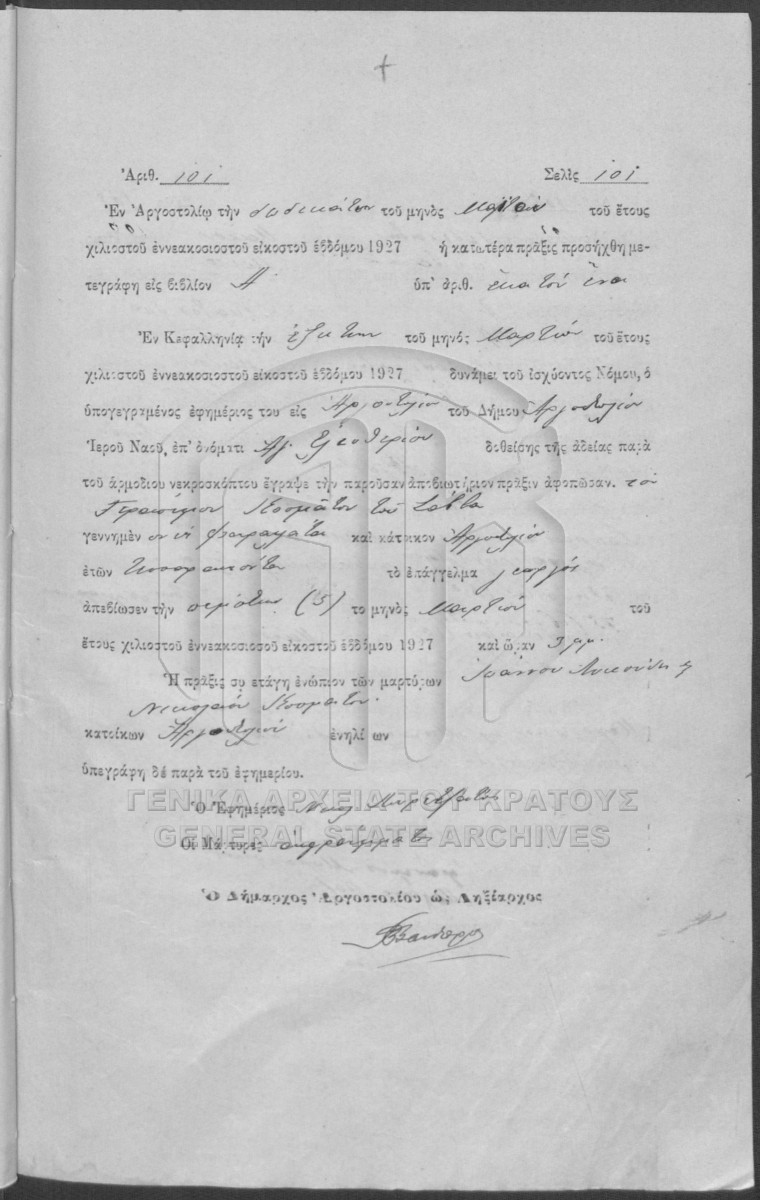 Ἀριθ. 101 Σελὶς 101
Ἐν Ἀργοστολίῳ τὴν δωδεκάτην τοῦ μηνὸς Μαρτίου τοῦ ἔτους
χιλιοστοῦ ἐννεακοσιοστοῦ εἰκοστοῦ ἑβδόμου 1927 ἡ κατωτέρα πρᾶξις προσήχθη με-
τεγράφη εἰς βιβλίον Α΄ ὑπ᾽ ἀριθ. ἑκατὸν ἕνα
Ἐν Κεφαλληνίᾳ τὴν ἕκτην τοῦ μηνός Μαρτίου τοῦ ἔτους
χιλιοστοῦ ἐννεακοσιοστοῦ εἰκοστοῦ ἑβδόμου 1927 δυνάμει τοῦ ἰσχύοντος Νόμου, ὁ
ὑπογεγραμένος ἐφημέριος του εἰς Ἀργοστόλιον τοῦ Δήμου Ἀργοστολίου
Ἱεροῦ Ναοῦ, ἐπ᾽ ὀνόματι Ἁγ. Ἐλευθερίου δοθείσης τῆς ἀδείας παρὰ
τοῦ ἁρμοδίου νεκροσκόπτου ἔγραψε τὴν παροῦσαν ἀποβιωτήριον πρᾶξιν ἀφοπῶσαν. τὸν
Γεράσιμον Κοσμᾶτον τοῦ Σάββα
γεννημέν ον εἰς Φαρακλάτα καὶ κάτοικον Ἀργοστολίου
ἐτῶν τεσσαράκοντα τὸ ἐπάγγελμα γεωργός
ἀπεβίωσεν τὴν πέμπτην (5) το μηνὸς Μαρτίου τοῦ
ἔτους χιλιοστοῦ ἐννεακοσιοσοῦ εἰκοστοῦ ἑβδόμου 1927 καὶ ὥραν 3 μ.μ.
Ἡ πρᾶξις συ ετάγη ἐνώπιον τῶν μαρτύρων Ἰωάννου
Νικολάου Κοσμάτου
κατοίκων Ἀργοστολίου ἐνηλί ων
ὑπεγράφη δὲ παρὰ τοῦ ἐφημερίου.
ΓΕΝΙΚΑ ΑΡΧΕΙΑ ΤΟΥ ΚΡΑΤΟΥΣ
Ὁ Ἐφημέριος Νικολ
GENERAL STATE ARCHIVES
Οἱ Μάρτυρες ἀγράμματοι
Ὁ Δήμαρχος Ἀργοστολίου ὡς Ληξίαρχος